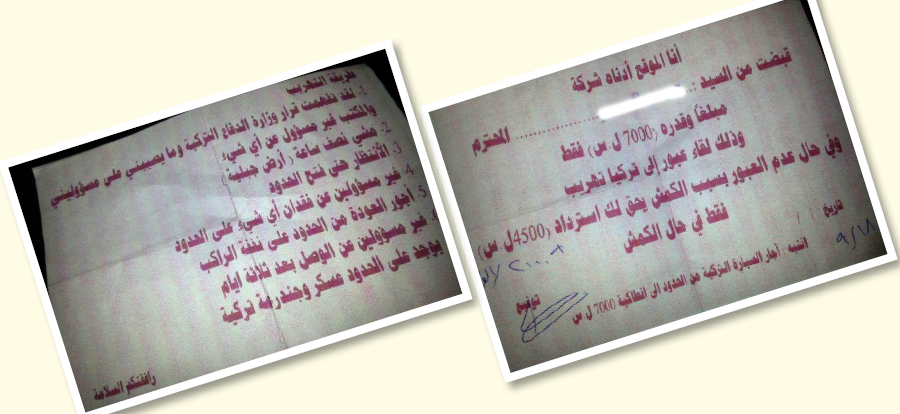 طريقة التهريب
1. لقد تفهمت قرار وزارة الدفاع التركية وما يصيبني على مسؤوليتي
والمكتب غير مسؤول عن أي شيء
2. مشي نصف ساعة (أرض جبلية)
3. الانتظار حتى فتح الحدود
4. غير مسؤولين عن فقدان أي شيء على الحدود
5. أجور العودة من الحدود على نفقة الراكب
غير مسؤولين عن الوصل بعد ثلاثة أيام
يوجد على الحدود عسكر وجندرمة تركية
رافقتكم السلامة
أنا الموقع أدناه شركة
قبضت من السيد : .................... المحترم
مبلغاً وقدره (7000 ل س) فقط
وذلك لقاء عبور إلى تركيا تهريب
وفي حال عدم العبور بسبب الكمش يحق لك استرداد (4500 ل س)
فقط في حال الكمش
تاريخ / /
توقيع
انتبه : آجار السيارة التركية من الحدود الى انطاكية 7000 ل س